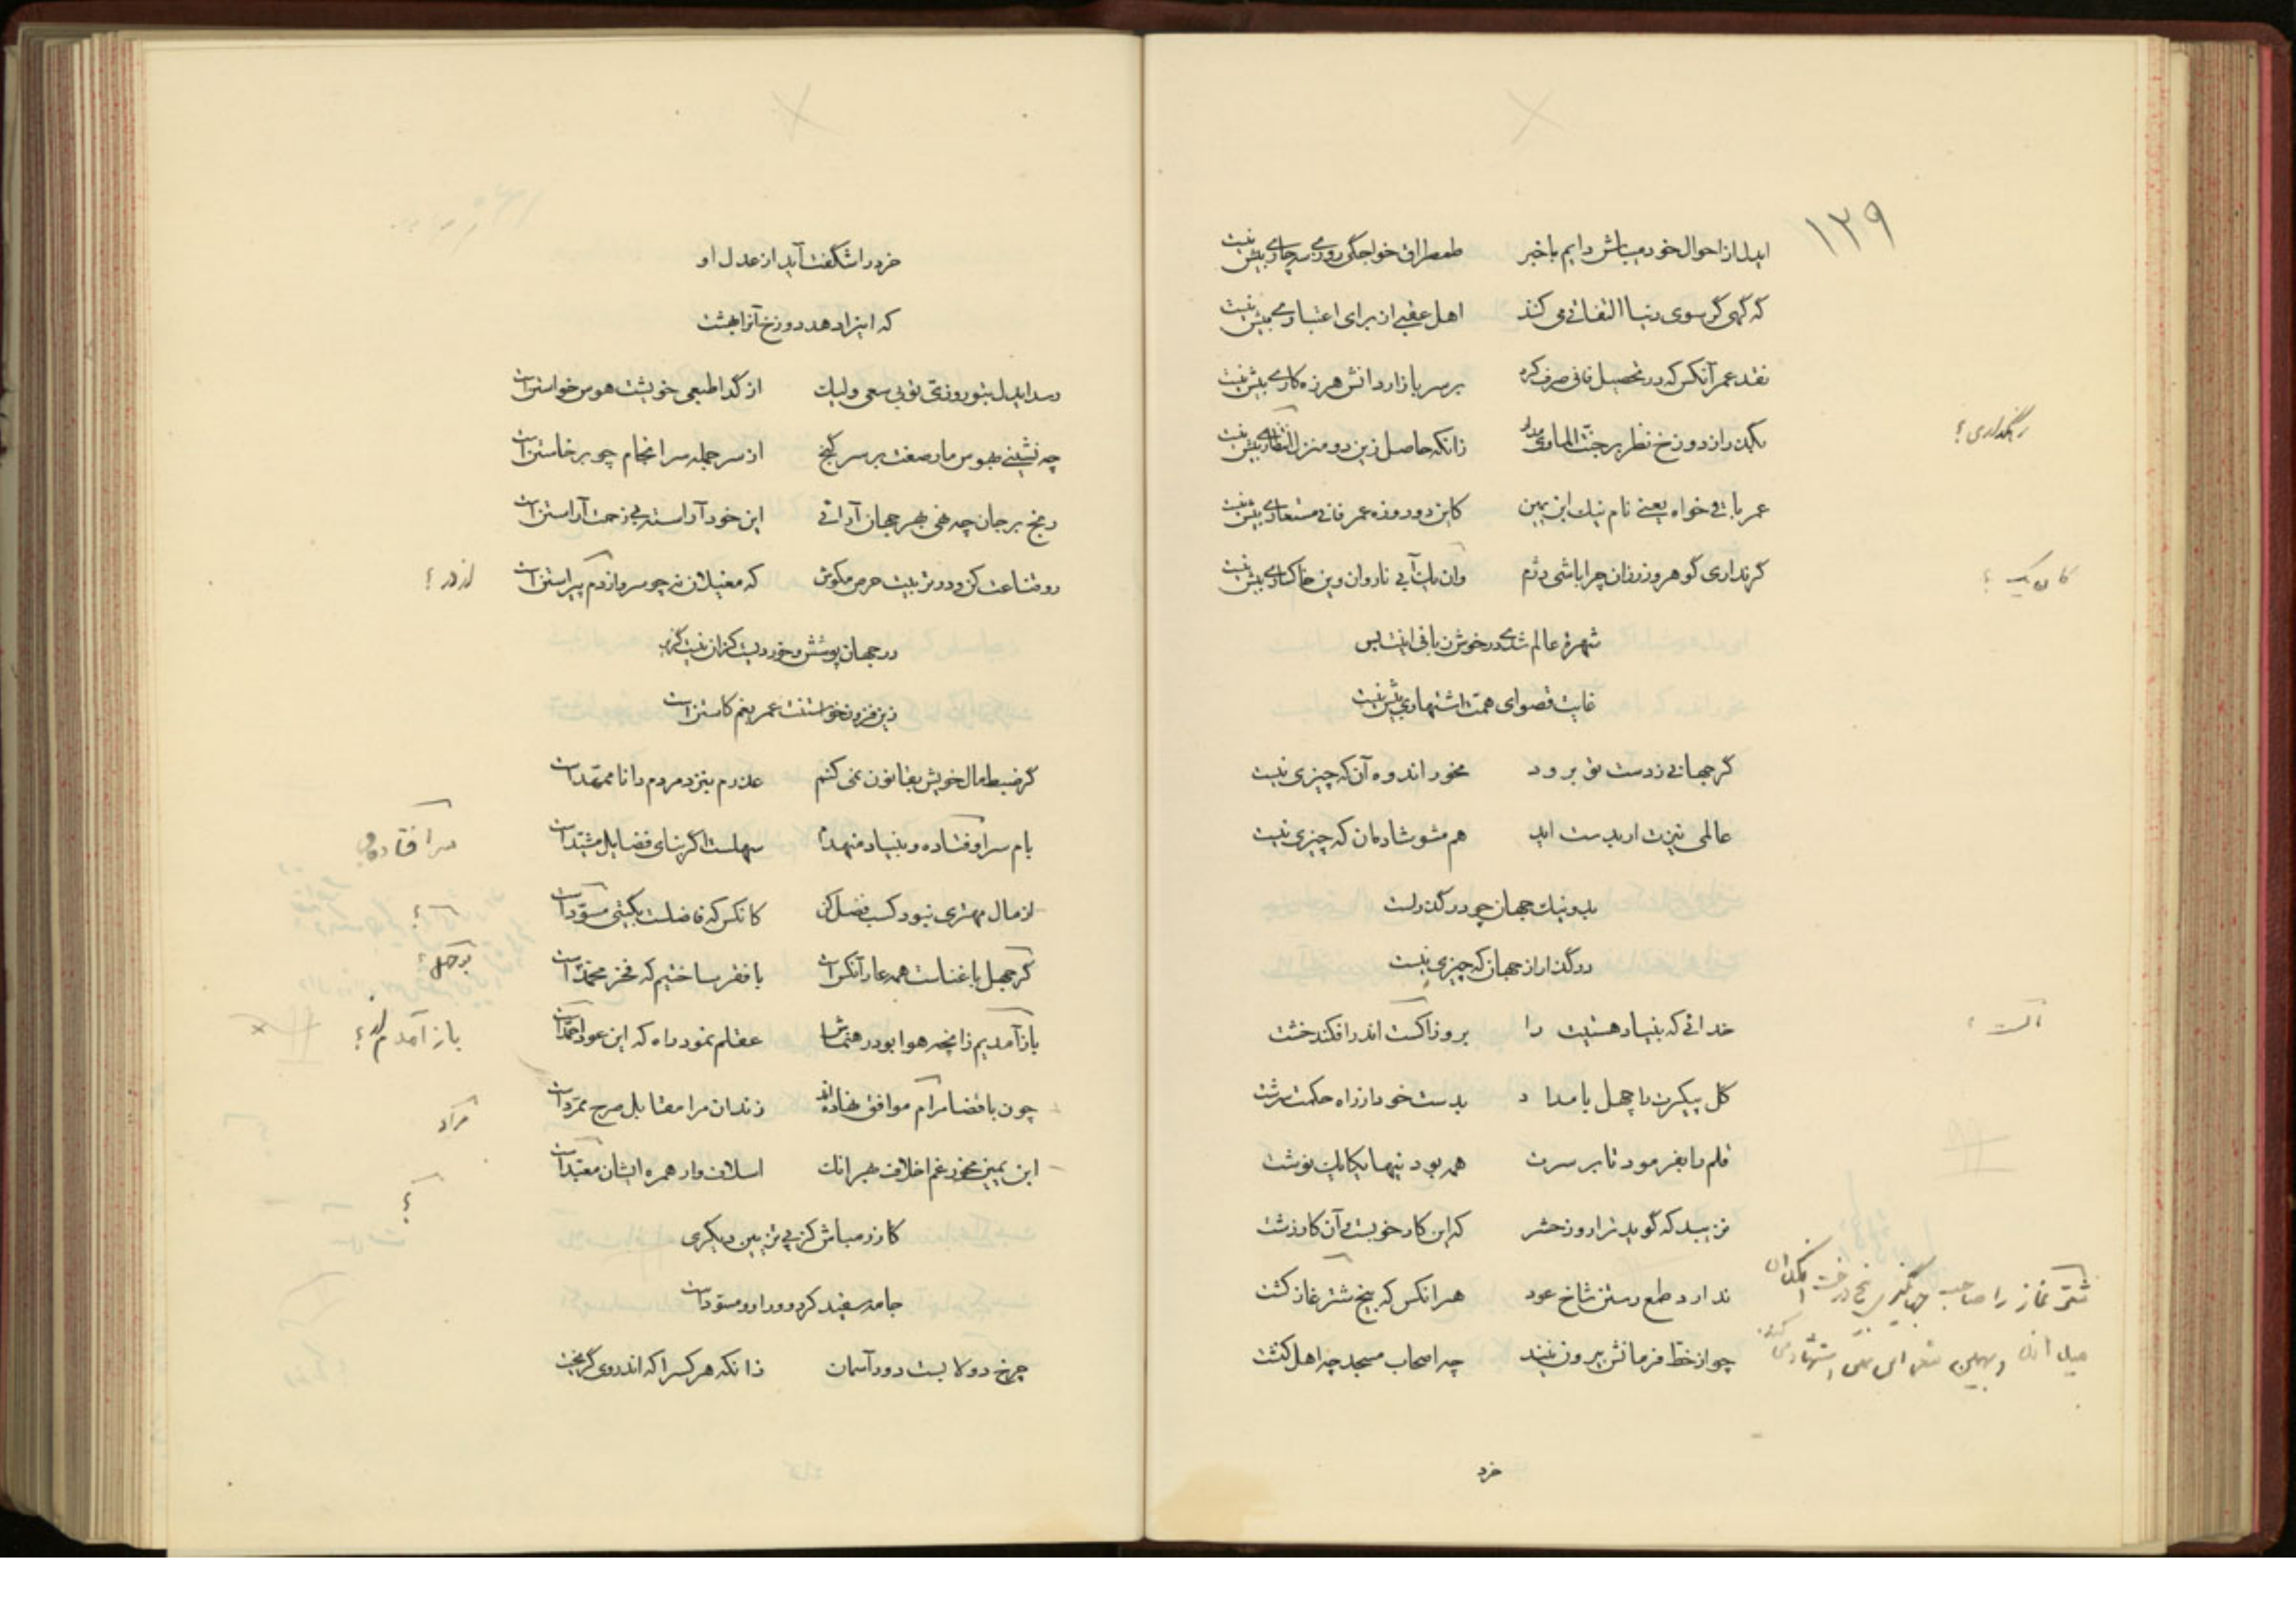 ۱۲۹
ایدل از احوال خود میباش دایم با خبر طمطراق خواجگی روزی سه چاری بیش نیست
که گهی گر سوی دنیا التفاتی می کند اهل عقبی از برای اعتباری بیش نیست
نقد عمر آنکس که در تحصیل فانی صرف کرد بر سر بازار دانش هرزه کاری بیش نیست
بگذر از دوزخ نظر بر جنت الماوی مدار زانکه حاصل زین دو منزل انتظاری بیش نیست
رهگذاری؟
عمر باقی خواه یعنی نام نیک ابن یمین کاین دو روزه عمر فانی مستعاری بیش نیست
گر نداری گوهر و زر زان چرا باشی دژم وان یک آبی ناروان وین خاکساری بیش نیست
کان یک؟
شهرهٔ عالم شدی در خوش زبانی اینت بس
غایت قصوای همت اشتهاری بیش نیست
گر جهانی ز دست تو برود مخور اندوه آن که چیزی نیست
عالمی نیزت ار بدست اید هم مشو شادمان که چیزی نیست
بد و نیک جهان چو در گذرست
در گذر از جهان که چیزی نیست
خدائی که بنیاد هستیت را بروز الست اندر افکند خشت
الست؟
گل پیکرت را چهل بامداد بدست خود از راه حکمت سرشت
قلم را بفرمود تا بر سرت همه بودنیها یکایک نوشت
نزیبد که گوید ترا روز حشر که این کار خوبست و آن کار زشت
ندارد طمع رستن شاخ عود هر انکس که بیخ شتر غاز کشت
شتر غاز را صاحب جهانگیری بیخ درخت انگدان
چو از خط فرمانش بیرون نیند چه اصحاب مسجد چه اهل کنشت
خرد
خرد را شگفت آید از عدل او
که اینرا دهد دوزخ آنرا بهشت
رسد ایدل بتو روزی تو بی سعی ولیک از گدا طبعی خویشت هوس خواستن است
چه نشینی بهوس مار صفت بر سر گنج از سر جمله سرانجام چو برخاستن است
رنج بر جان چه نهی بهر جهان آرائی این خود آراسته بی زحمت آراستن است
رو قناعت کن و در تربیت حرص مکوش که مغیلان نه چو سرو از در پیراستن است
از در؟
در جهان پوشش و خوردیست کزان نیست گزیر
زین فزون خواستنت عمر بغم کاستن است
گر ضبط مال خویش بقانون نمی کنم عذرم بنزد مردم دانا ممهّد است
بام سرا و فتاده و بنیاد منهدم سهلست اگر بنای فضایل مشیّد است
سرا فتاده و
از مال مهتری نبود کسب فضل کن کانکس که فاضلست بگیتی مسوّد است
گر جهل با غناست همه عار آنکس است با فقر ساختیم که فخر محمّد است
باز آمدیم زانچه هوا بود رهنماش عقلم نمود راه که این عود احمد است
باز آمدم از؟
چون با قضا مرام موافق نهاده اند زندان مرا مقابل صرح ممرّد است
مراد
ابن یمین مخور غم اخلاف بهر آنک اسلاف وار همره ایشان مقیّد است
کازر مباش کز پی تزیین دیگری
جامه سفید کرد و ورا رو مسوّد است
چرخ دولابست دور آسمان زانکه هر کسرا که اندر وی گریخت